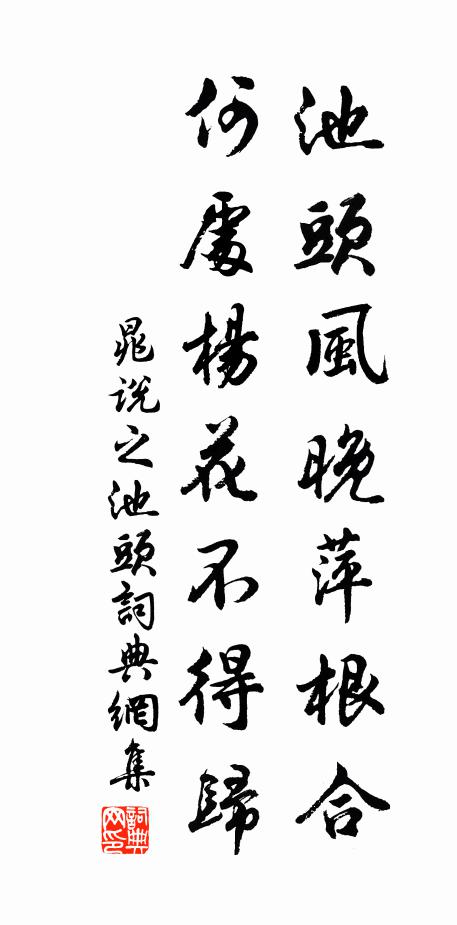 池頭風晚萍根合
何處楊花不得歸
晁說之池頭詞典網集
詞典網印